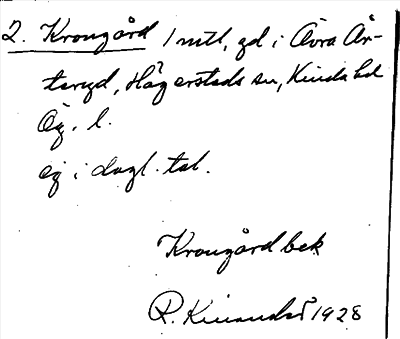 2. Krongård 1 mtl, gd i Övra År-
teryd, Hägerstads sn, Kinda hd
Ög. l.
ej i dagl. tal.
Krongård bek
R. 1928